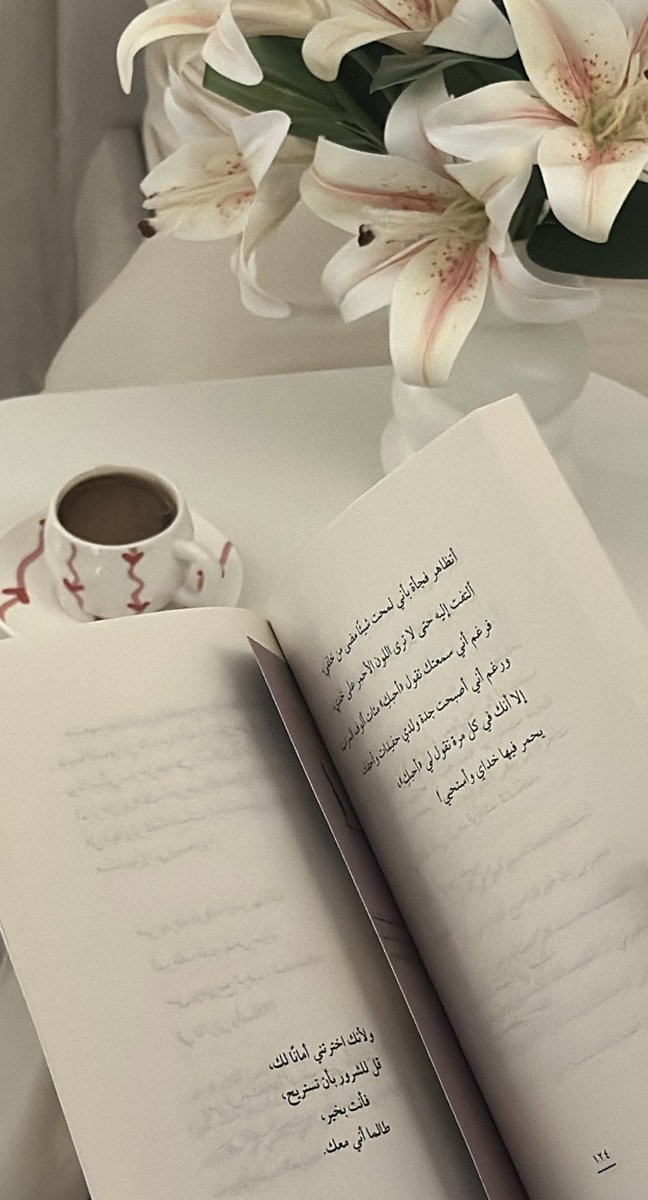 أتظاهر فجأة بأني لمحت شيئًا مضى من خلفي
ألتفت إليه حتى لا ترى اللون الأحمر على خدي
فرغم أني سمعتك تقول «أحبك» مئات
ورغم أني أصبحت جدة ولدي حفيدات وأحفاد
إلا أنك في كل مرة تقول لي «أحبك»،
يحمر فيها خداي وأستحي!
١٢٤
ولأنك اخترتني أمانًا لك،
قل للشرور بأن تستريح،
فأنت بخير،
طالما أني معك.